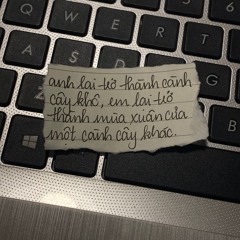 Q W E R
A S D
anh lại trở thành cành
cây khô, em lại trở
thành mùa xuân của
một cành cây khác.